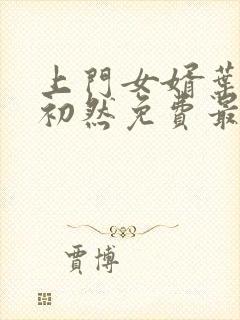 上門女婿葉
初然免費最
賈博